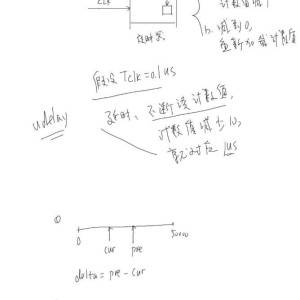 CLK
计数值减1
b. 减到0,
重新加载计数值
定时器
假设 Tclk=0.1us
udelay
延时、不断读计数值,
计数值减少10,
就对应 1us
①
0
50000
cur
pre
delta = pre - cur